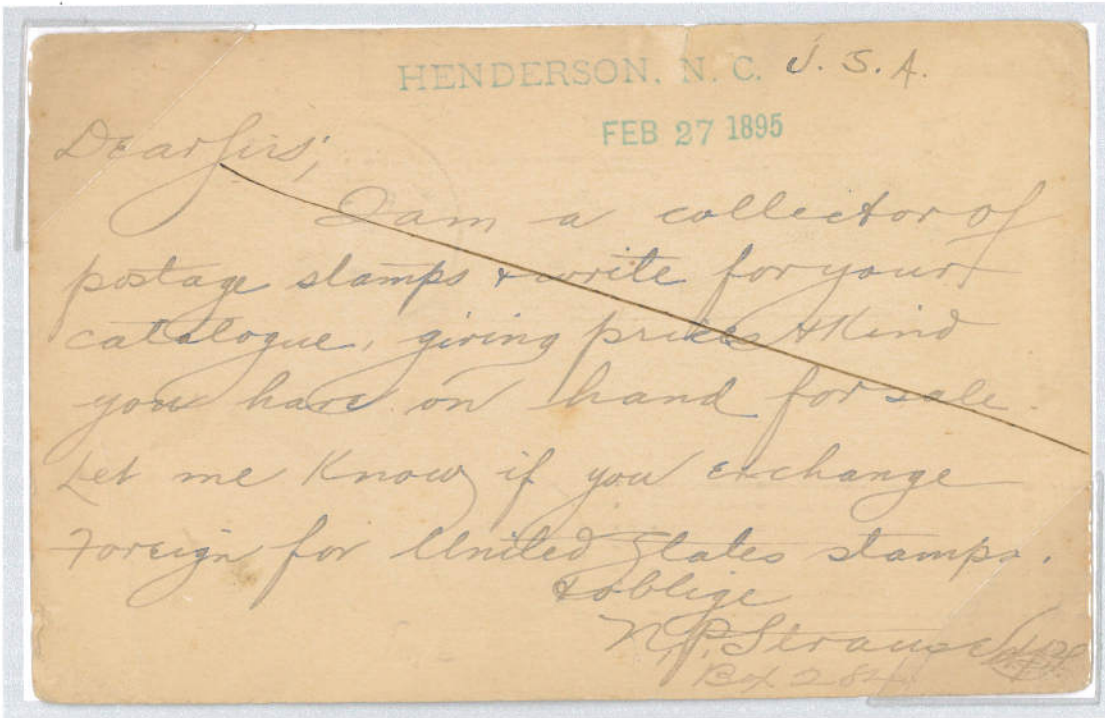 HENDERSON, N. C. U. S. A.
FEB 27 1895
Dear Sirs;
I am a collector of
postage stamps & write for your
catalogue, giving prices & Kind
you have on hand for sale
Let me Know if you exchange
Foreign for United States stamps.
& oblige
N. P. Strause
Box 284